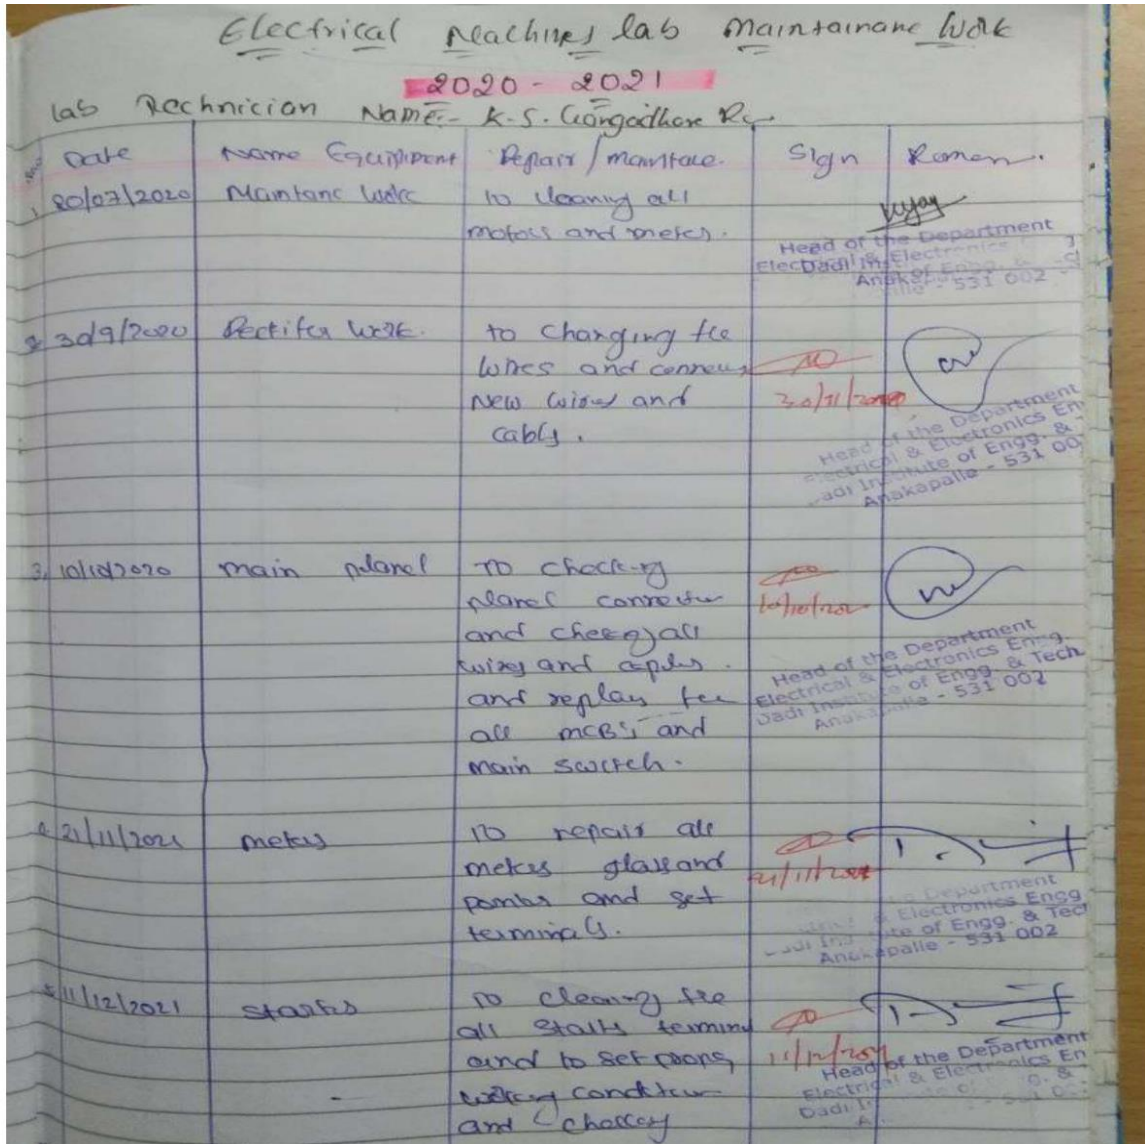 Electrical Machines lab Maintainanc Work
2020 - 2021
lab Rechnician Name:- K.S. Gangadhara
Date Name Equipment Repair / maintace. Sign Remark.
1, 20/07/2020 Maintanc Work to cleaning all
motors and meters.
Head of the Department
Electrical & Electronics
Dadi Ins
Anakapalle - 531 002
2, 30/9/2020 Rectifer Work. to Changing the
wires and
New wires and 30/11/2020
cables.
Head of the Department
Electrical & Electronics En
Dadi Institute of Engg. &
Anakapalle - 531 00
3, 10/10/2020 main planel TO checking
planel 10/10/202
and all
wires and
and replay the
all MCB's and
main switch.
Head of the Department
Electrical & Electronics Engg.
Dadi Institute of Engg. & Tech
Anakapalle - 531 002
21/11/2021 meters TO repair all
meters glass and 21/11/2021
and set
terminals.
Department
& Electronics Engg
Dadi Ins te of Engg. & Tech
Anakapalle - 531 002
5, 11/12/2021 TO cleaning the
all termin
and to set 11/12/2021
working condition
and
Head of the Department
Electrical & Electronics En
Dadi I